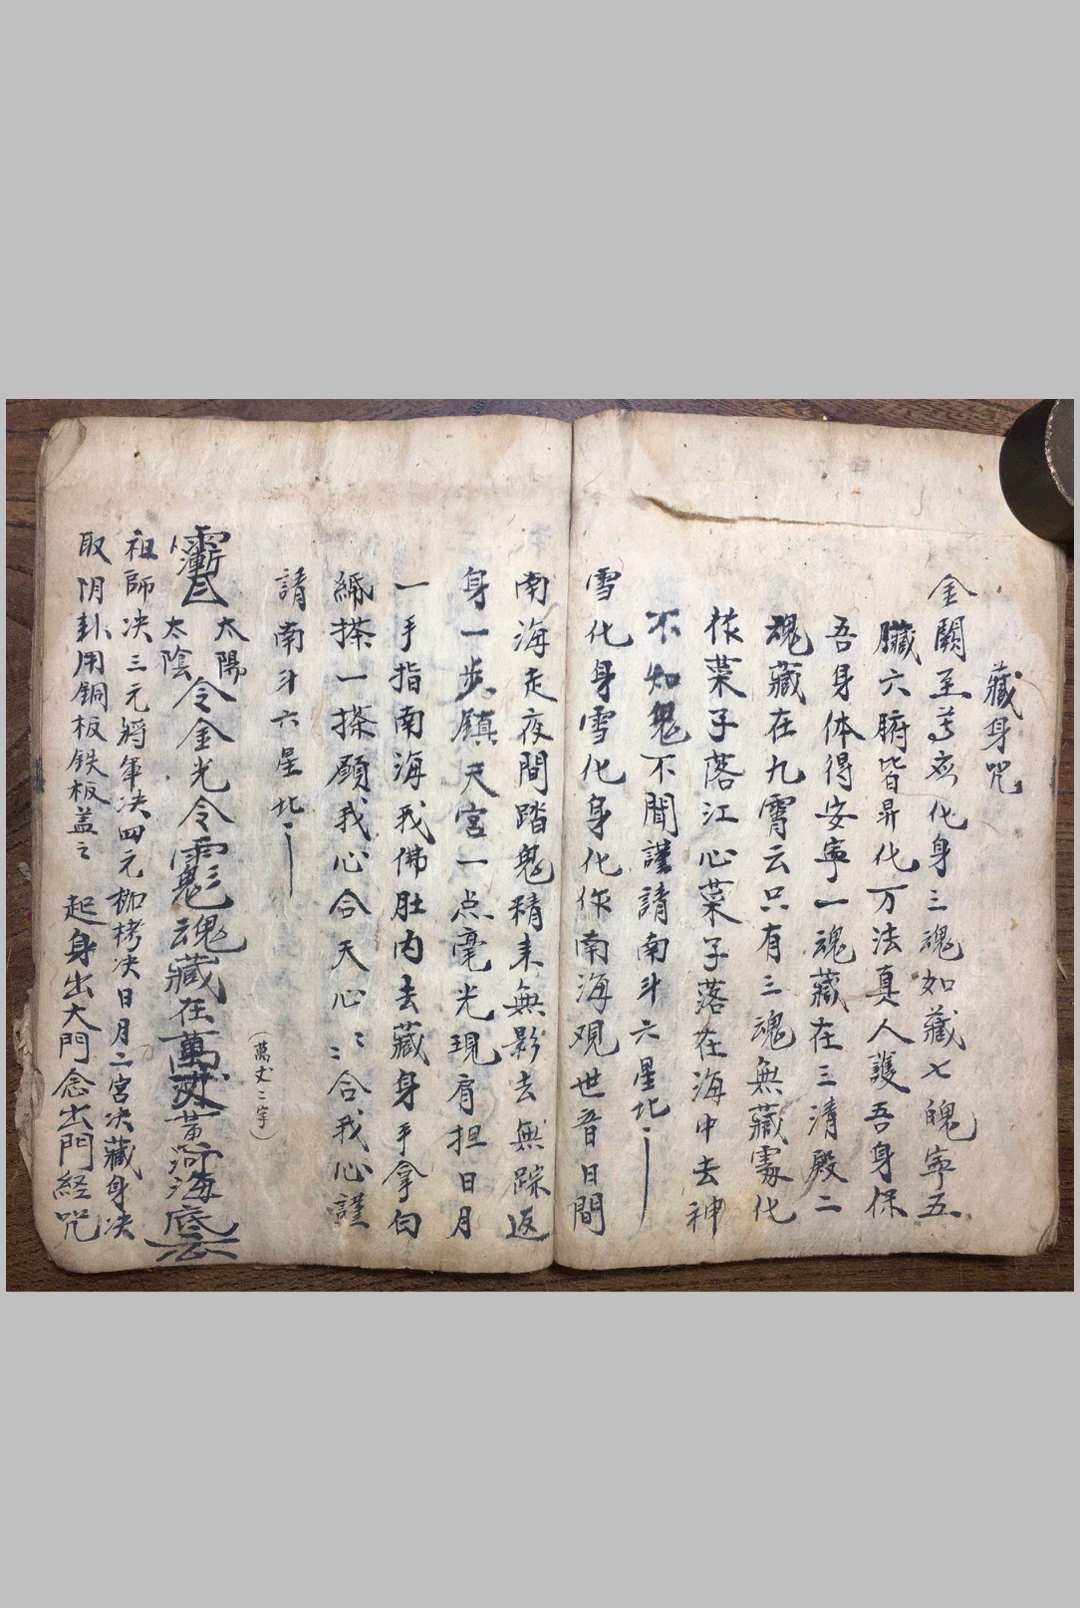 藏身咒
金闕至尊应化身三魂如藏七魄寧五
臟六腑皆昇化万法真人護吾身保
吾身体得安寧一魂藏在三清殿二
魂藏在九霄云只有三魂無藏處化
菜子落江心菜子落在海中去神
不知鬼不聞謹請南斗六星北
雪化身雪化身化作南海观世音日間
南海走夜間踏鬼精来無影去無踪返
身一步鎮天宮一点毫光現肩担日月
一手指南海我佛肚内去藏身手拿白
搽一搽願我心合天心〻合我心謹
請南斗六星北
（萬丈二字）
太陽
太陰
令金光令
魂藏在萬丈黄河海底去
祖師决三元將軍决四元枷栲决日月二宮决藏身决
取阴卦用铜板鉄板盖之 起身出大門念出門経咒